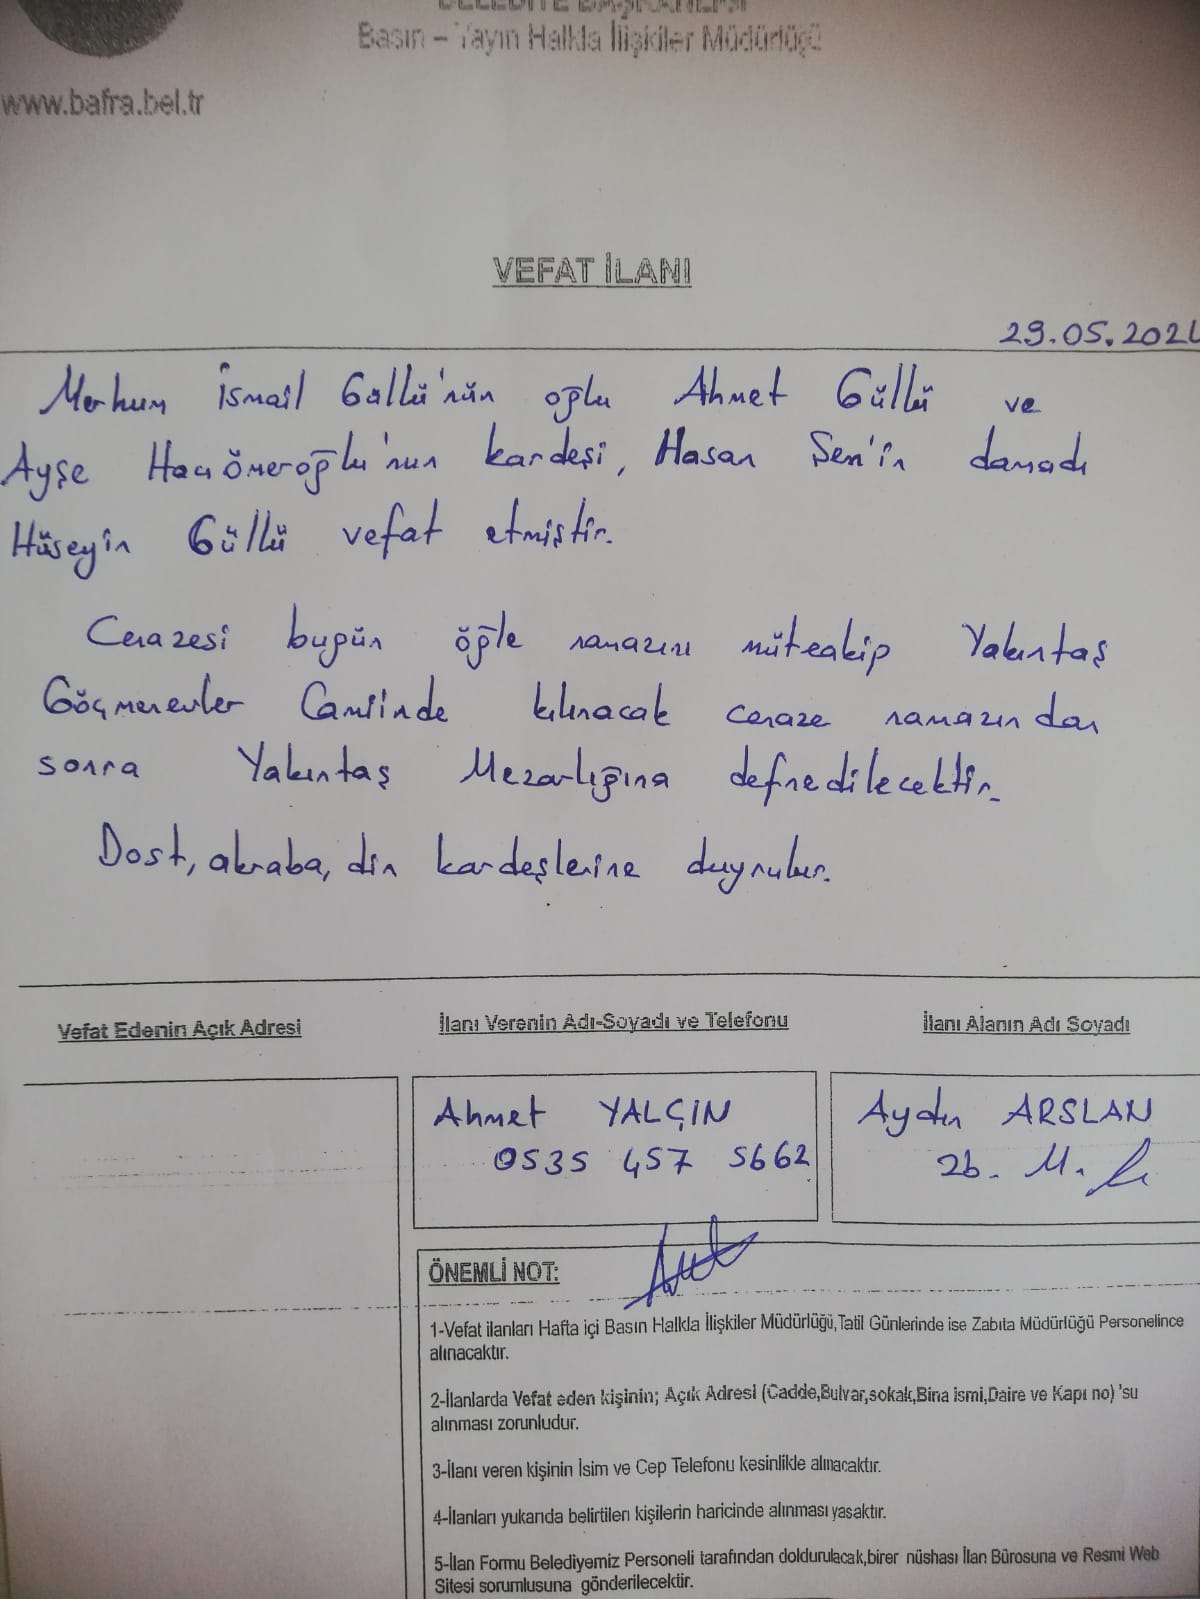 BELEDİYE BAŞKANLIĞI
Basın – Yayın Halkla İlişkiler Müdürlüğü
www.bafra.bel.tr
VEFAT İLANI
29.05.202
Merhum İsmail Güllü'nün oğlu Ahmet Güllü ve
Ayşe Hacıömeroğlu'nun kardeşi, Hasan Şen'in damadı
Hüseyin Güllü vefat etmiştir.
Cenazesi bugün öğle namazını müteakip Yakıntaş
Göçmenevler Camiinde kılınacak cenaze namazından
sonra Yakıntaş Mezarlığına defnedilecektir.
Dost, akraba, din kardeşlerine duyrulur.
Vefat Edenin Açık Adresi
İlanı Verenin Adı-Soyadı ve Telefonu
İlanı Alanın Adı Soyadı
Ahmet YALÇIN
0535 457 5662
Aydın ARSLAN
Zb. M.
ÖNEMLİ NOT:
1-Vefat ilanları Hafta içi Basın Halkla İlişkiler Müdürlüğü,Tatil Günlerinde ise Zabıta Müdürlüğü Personelince
alınacaktır.
2-İlanlarda Vefat eden kişinin; Açık Adresi (Cadde,Bulvar,sokak,Bina ismi,Daire ve Kapı no) 'su
alınması zorunludur.
3-İlanı veren kişinin İsim ve Cep Telefonu kesinlikle alınacaktır.
4-İlanları yukarıda belirtilen kişilerin haricinde alınması yasaktır.
5-İlan Formu Belediyemiz Personeli tarafından doldurulacak,birer nüshası İlan Bürosuna ve Resmi Web
Sitesi sorumlusuna gönderilecektir.